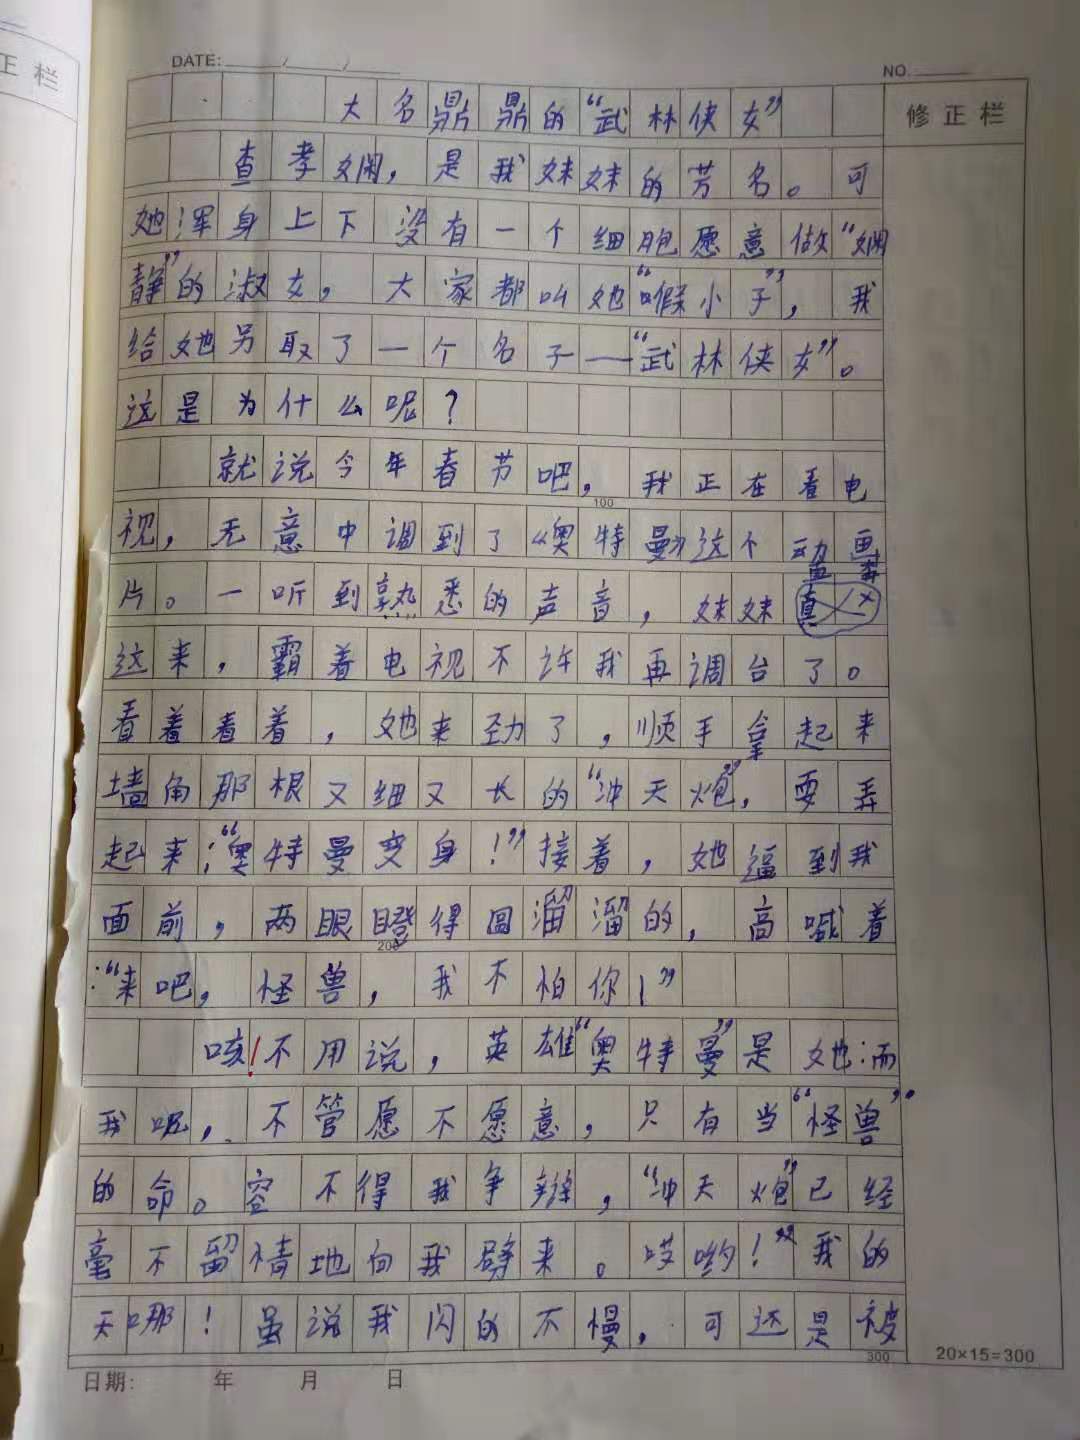 正栏
DATE: / /
NO.
修正栏
大名鼎鼎的“武林侠女”
查孝娴，是我妹妹的芳名。可
她浑身上下没有一个细胞愿意做“娴
静”的淑女，大家都叫她“假小子”，我
给她另取了一个名子——“武林侠女”。
这是为什么呢？
就说今年春节吧，我正在看电
100
视，无意中调到了《奥特曼》这个动画
片。一听到熟悉的声音，妹妹
这来，霸着电视不许我再调台了。
看着看着，她来劲了，顺手拿起来
墙角那根又细又长的“冲天炮”，耍弄
起来：“奥特曼变身！”接着，她逼到我
面前，两眼瞪得圆溜溜的，高喊着
200
：“来吧，怪兽，我不怕你！”
咳！不用说，英雄“奥特曼”是她；而
我呢，不管愿不愿意，只有当“怪兽”
的命。容不得我争辩，“冲天炮”已经
毫不留情地向我劈来。哎哟！”我的
天哪！虽说我闪的不慢，可还是被
300
20×15=300
日期： 年 月 日